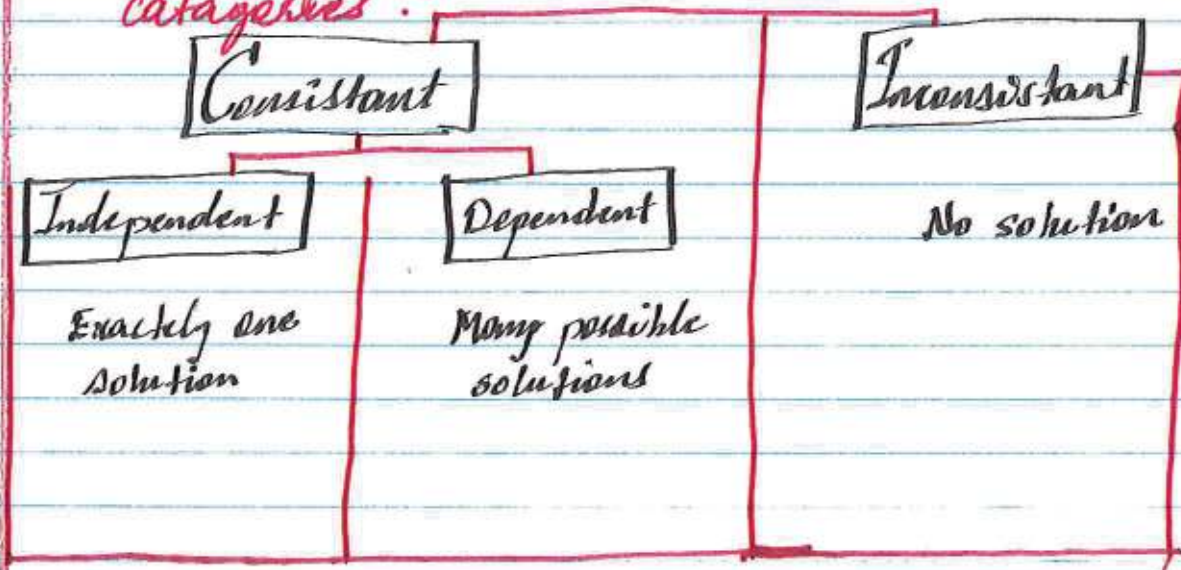 catagories.
Consistant
Inconsistant
Independent
Dependent
No solution
Exactely one
solution
Many possible
solutions